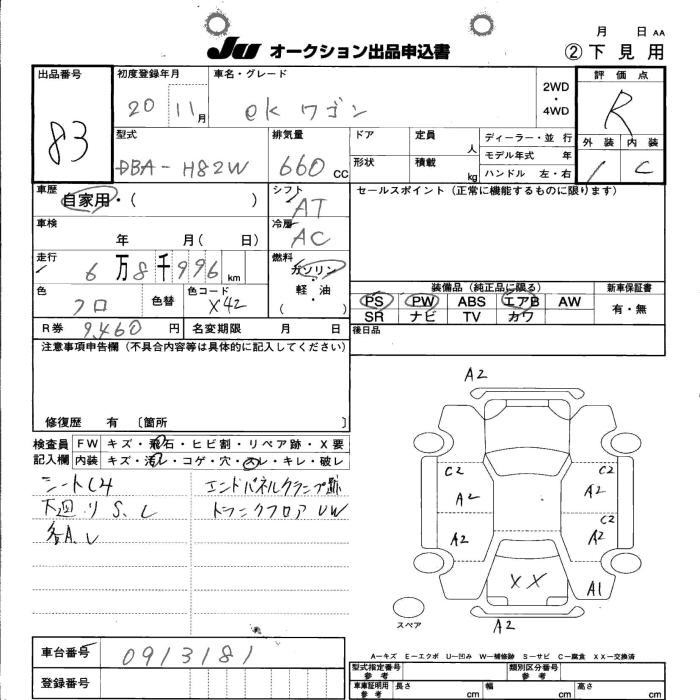 JU オークション出品申込書
月 日 AA
② 下見用
出品番号
83
初度登録年月
20 11月
車名・グレード
ek ワゴン
2WD
・
4WD
評価点
R
外装 内装
1 C
型式
DBA-H82W
排気量
660 CC
ドア
形状
定員 人
積載 kg
ディーラー・並行
モデル年式 年
ハンドル 左・右
車歴
自家用・( )
シフト
AT
セールスポイント(正常に機能するものに限ります)
車検
年 月( 日)
冷房
AC
走行
6万8千996 km
燃料
ガソリン
・
軽・油
( )
色
クロ
色替
色コード
X42
装備品(純正品に限る)
新車保証書
PS PW ABS エアB AW
SR ナビ TV カワ
有・無
R券 9,460円
名変期限 月 日
後日品
注意事項申告欄(不具合内容等は具体的に記入してください)
修復歴 有 〔箇所 〕
検査員
記入欄
FW キズ・飛石・ヒビ割・リペア跡・X要
内装 キズ・汚レ・コゲ・穴・スレ・キレ・破レ
下廻りS、L
各A、U
エンドパネルクランプ跡
トランクフロアUW
A2
C2
A2
C2
A2
A2
C2
A2
XX
A1
A2
スペア
A−キズ E−エクボ U−凹み W−補修跡 S−サビ C−腐食 XX−交換済
車台番号 0913181
登録番号
型式指定番号
参考
類別区分番号
参考
車庫証明用
参考
長さ cm
幅 cm
高さ cm